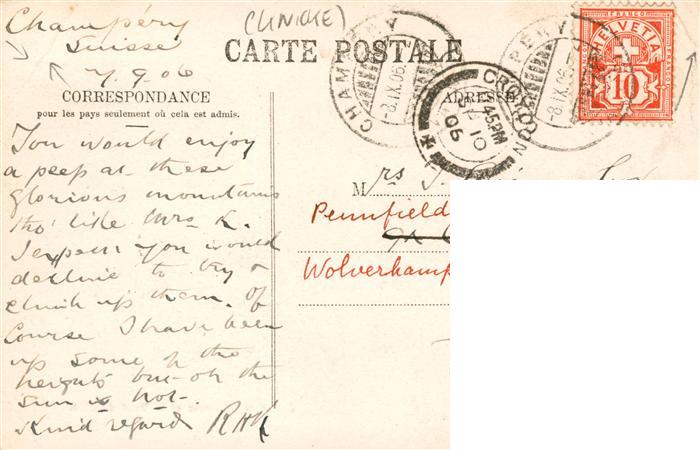 Champéry
Suisse
7.9.06
(LINICKE)
CARTE POSTALE
CORRESPONDANCE
pour les pays seulement où cela est admis.
ADRESSE
CHAMPÉRY
-8.IX.06
CROYDON
45PM
10
06
PÉRY
-8.IX.06
FRANCO
HELVETIA
10
You would enjoy
a peep at these
glorious mountains
tho' like Mrs K.
I expect you would
decline to try &
climb up them. Of
course I have been
up some of the
heights but oh the
sun is hot.
Kind regards RHK
Mrs
Pennfield
Wolverhamp